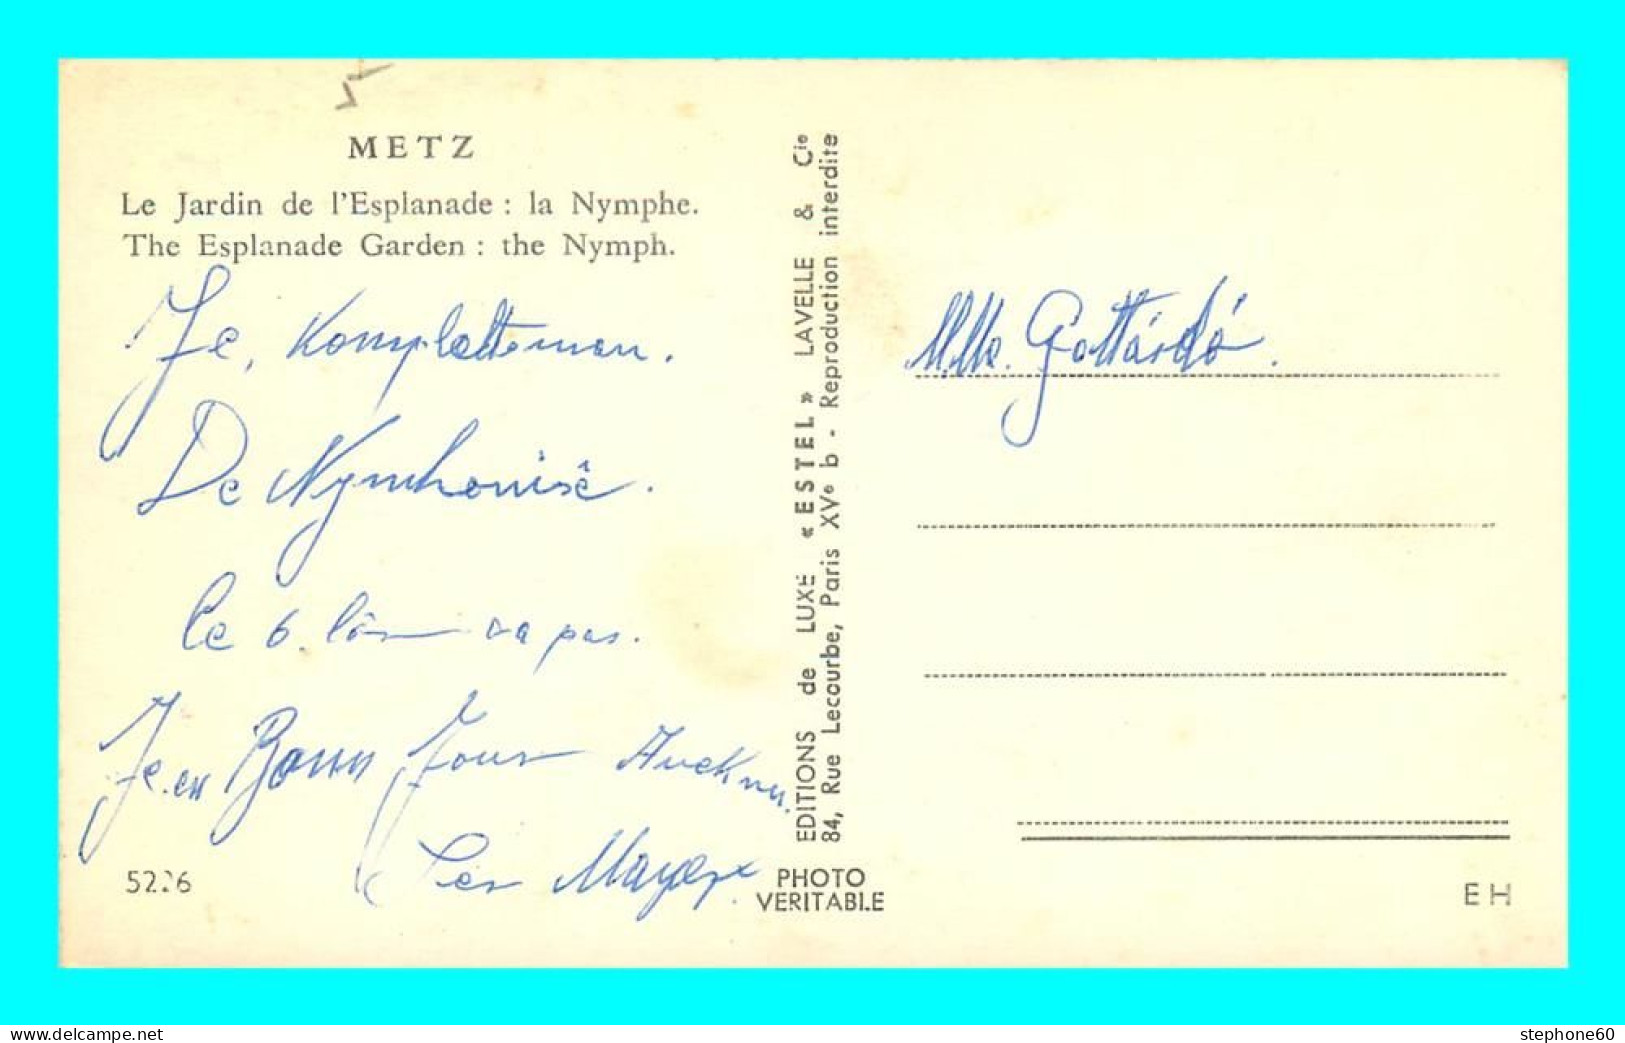 METZ
Le Jardin de l'Esplanade : la Nymphe.
The Esplanade Garden : the Nymph.
Je, Komplettoman.
De Nymhonisé.
Ce 6. lôn va pas.
Je en Bonn Jour
Les Mayer.
5226
EDITIONS de LUXE « ESTEL » LAVELLE & Cie
84, Rue Lecourbe, Paris XVe b - Reproduction interdite
PHOTO
VERITABLE
M.Me. Gottardó.
EH
stephone60
www.delcampe.net